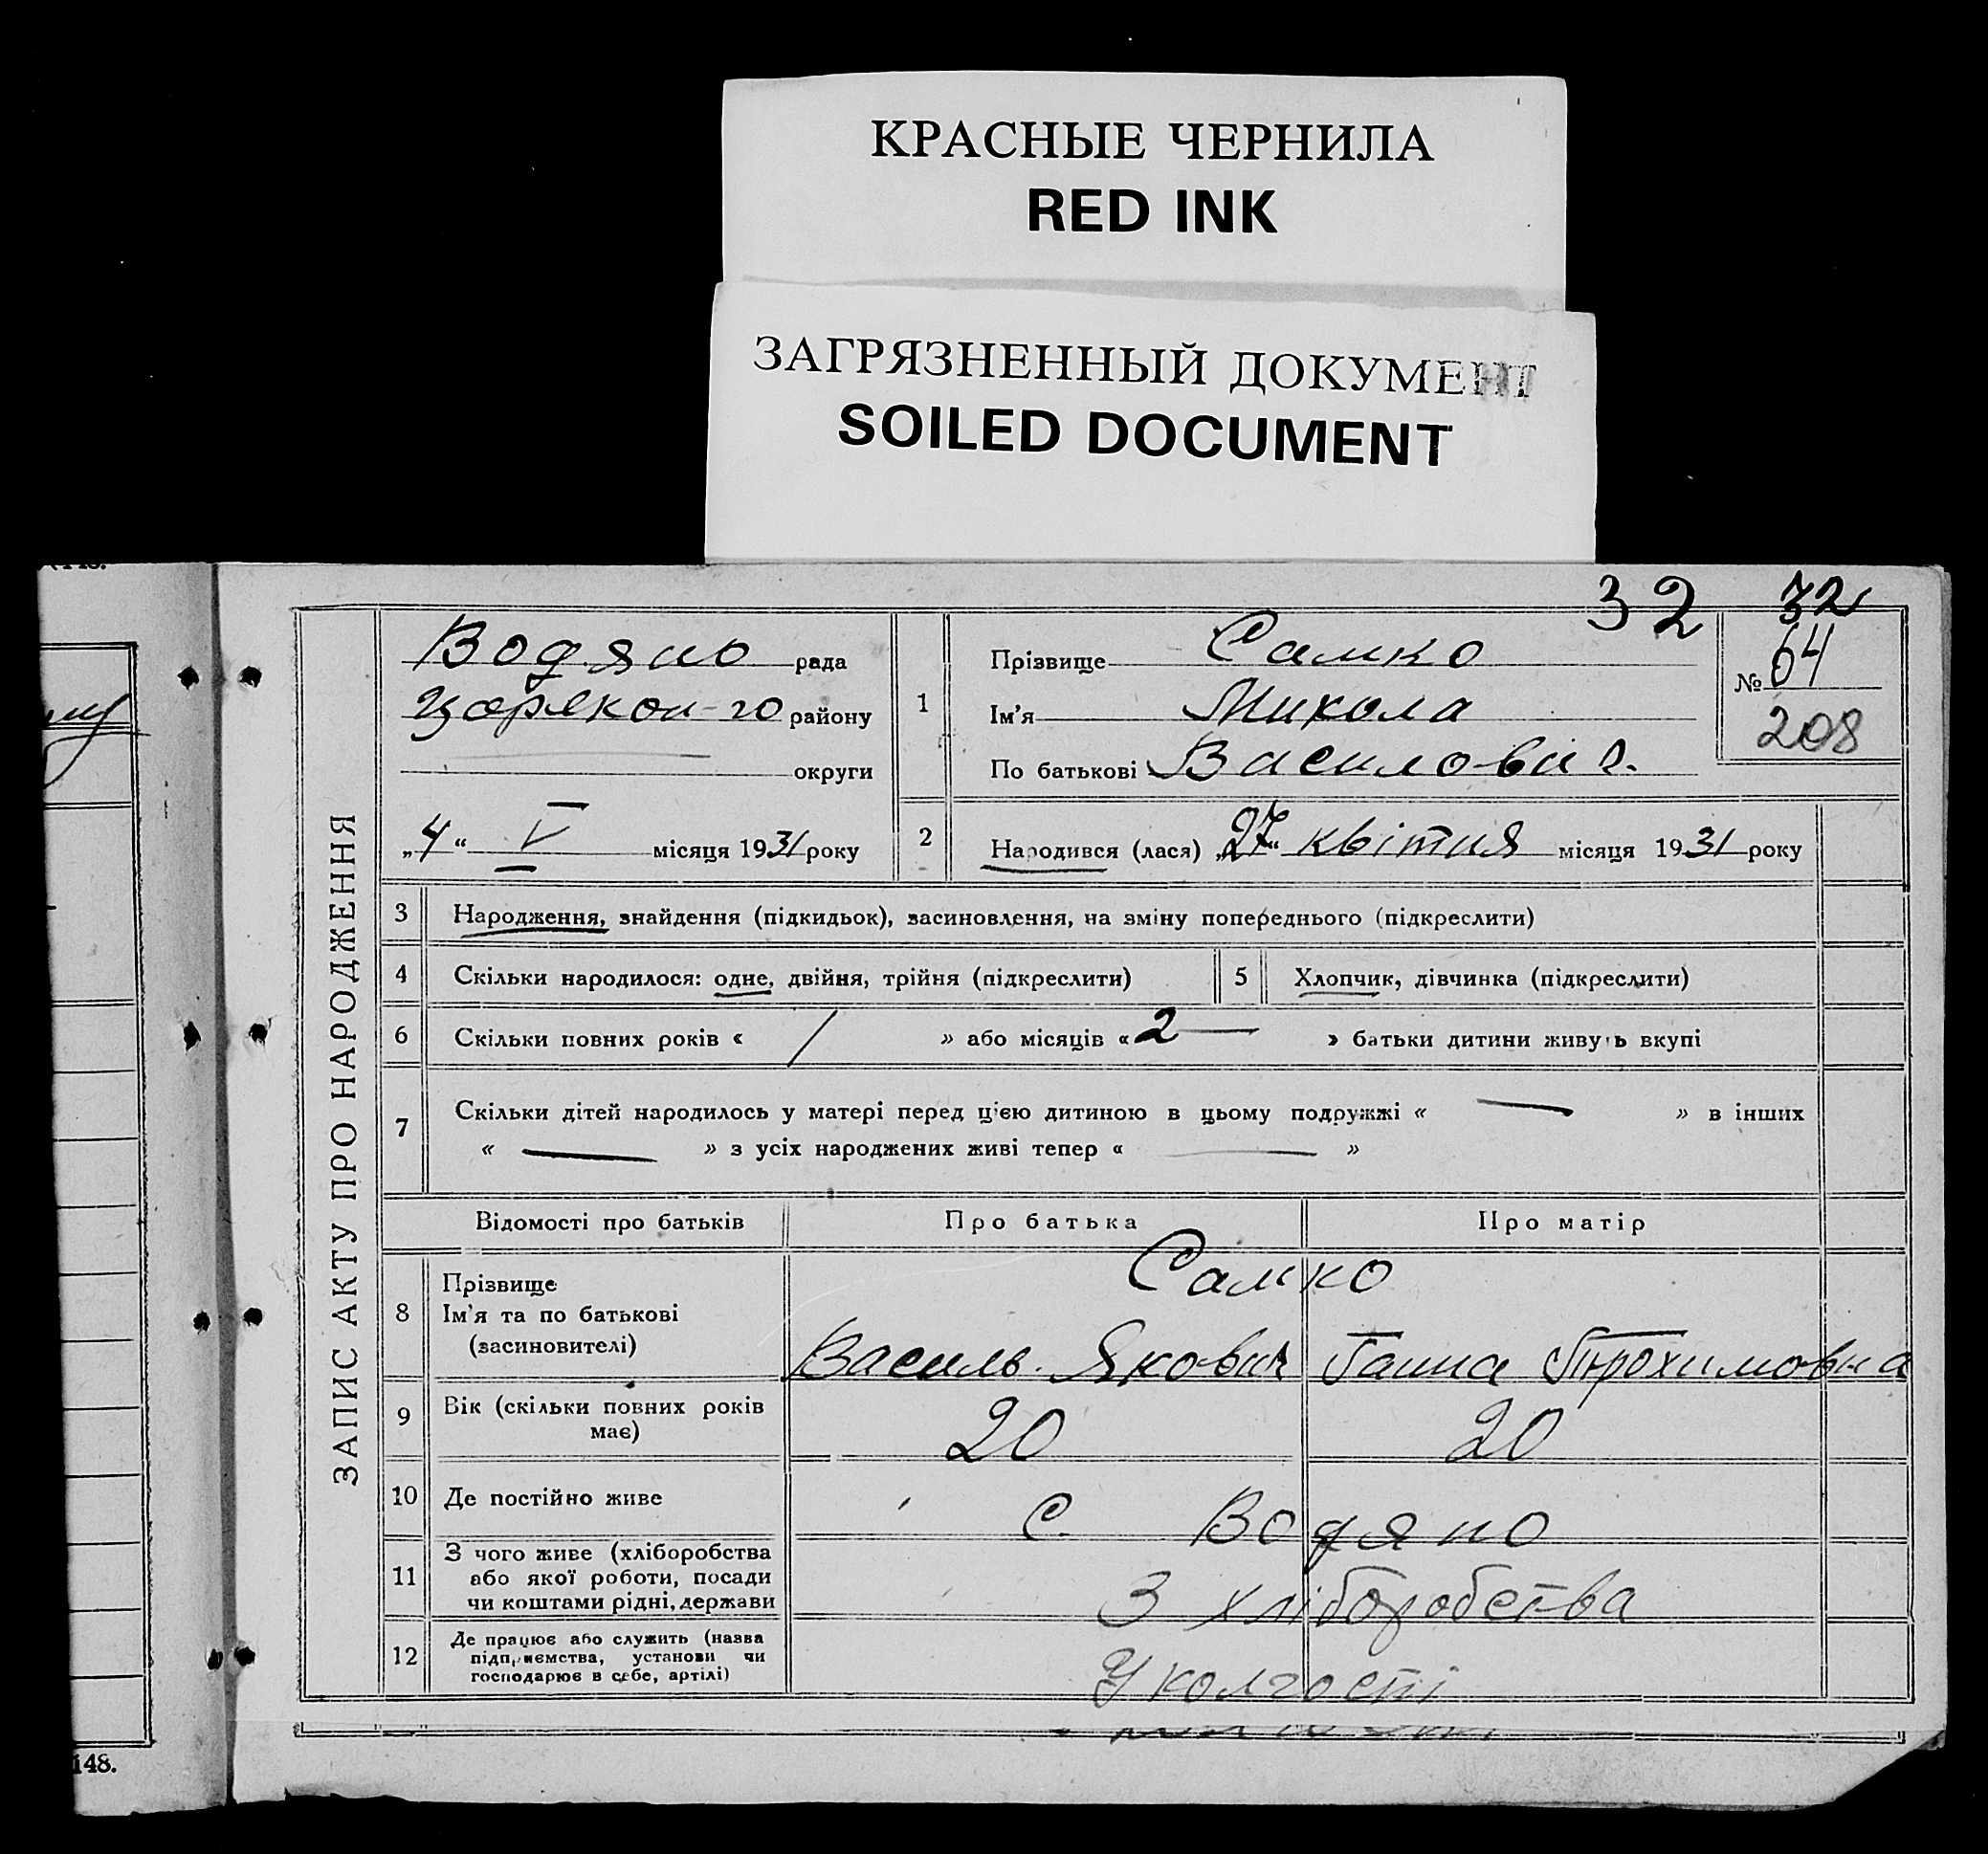 КРАСНЫЕ ЧЕРНИЛА
RED INK
ЗАГРЯЗНЕННЫЙ ДОКУМЕНТ
SOILED DOCUMENT
32 32
ЗАПИС АКТУ ПРО НАРОДЖЕННЯ
Водяно рада
району
округи
„4“ V місяця 1931 року
1
Прізвище Самко
Ім'я Микола
По батькові Василович.
№ 64
208
2 Народився (лася) „27“ квітня місяця 1931 року
3 Народження, знайдення (підкидьок), засиновлення, на зміну попереднього (підкреслити)
4 Скільки народилося: одне, двійня, трійня (підкреслити) 5 Хлопчик, дівчинка (підкреслити)
6 Скільки повних років « / » або місяців « 2 — » батьки дитини живуть вкупі
7 Скільки дітей народилось у матері перед цією дитиною в цьому подружжі « — » в інших
« — » з усіх народжених живі тепер « — »
Відомості про батьків Про батька Про матір
8 Прізвище Самко
Ім'я та по батькові
(засиновителі) Василь Якович Ганна Трохимовна
9 Вік (скільки повних років
має) 20 20
10 Де постійно живе с. Водяно
11 З чого живе (хліборобства
або якої роботи, посади
чи коштами рідні, держави З хліборобства
12 Де працює або служить (назва
підприємства, установи чи
господарює в себе, артілі) У колгоспі
148.